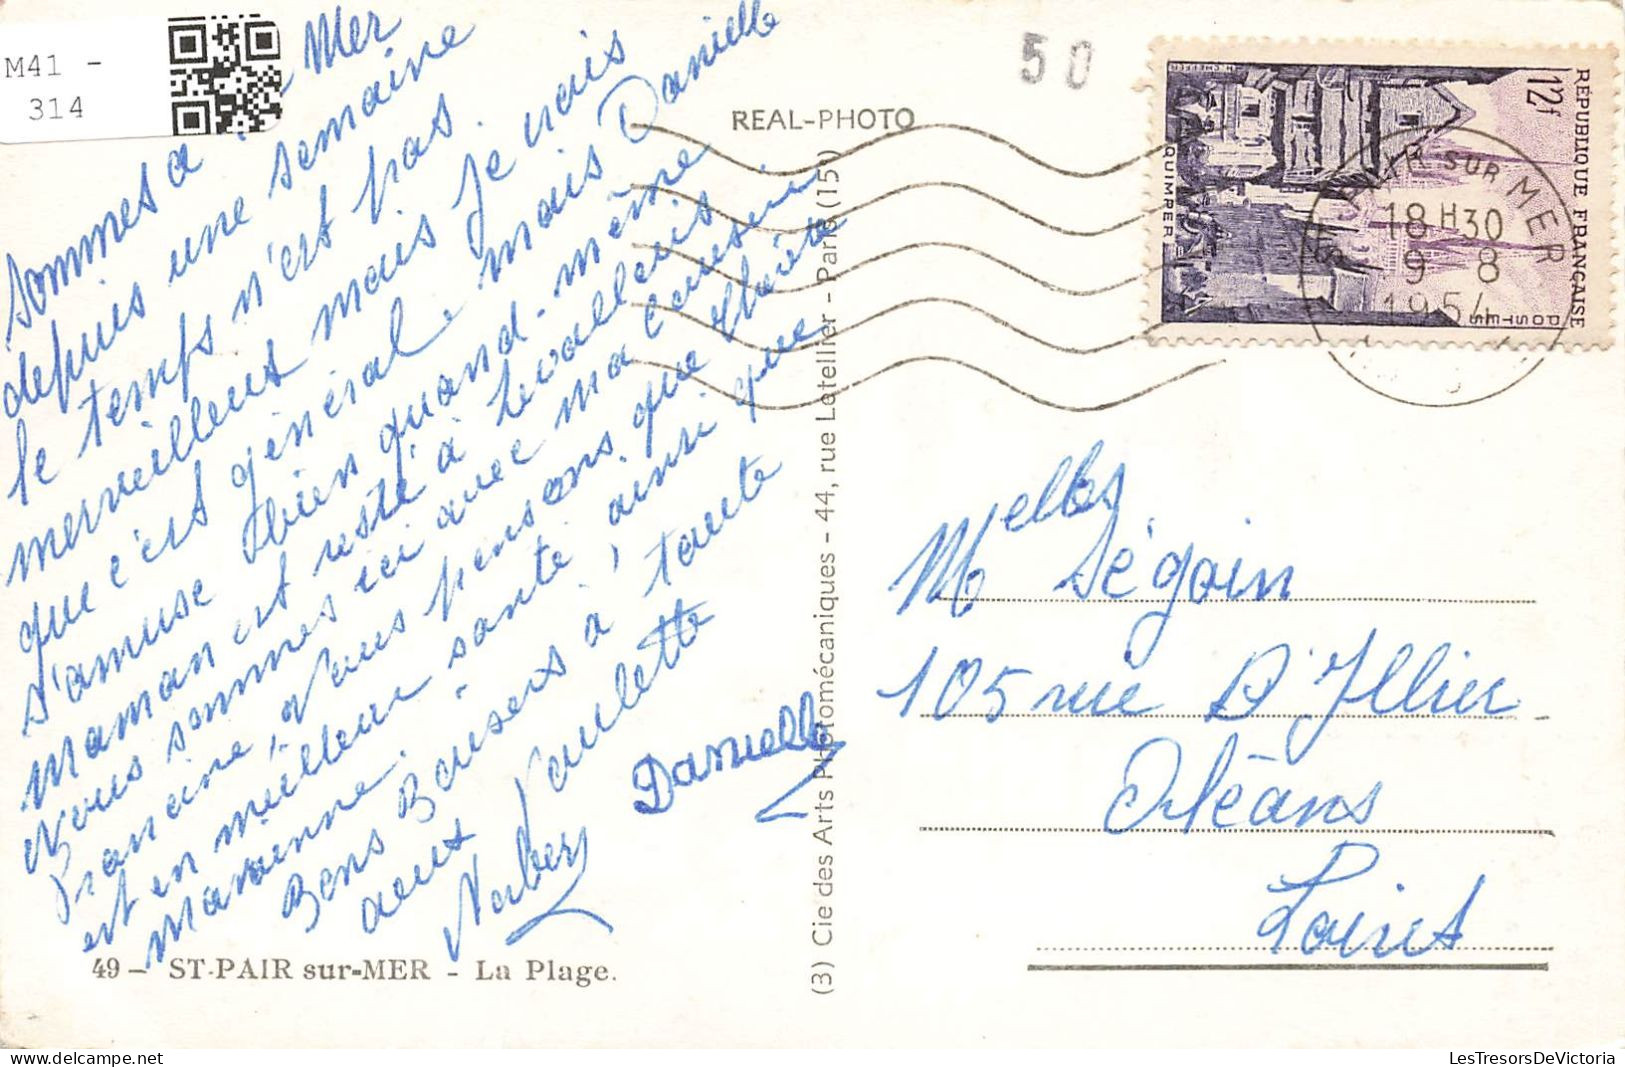 M41 -
314
50
REAL-PHOTO
REPUBLIQUE FRANÇAISE
12f
POSTES
QUIMPER
ST PAIR SUR MER
18H30
9 8
1954
sommes à Mer
depuis une semaine
le temps n'est pas
merveilleux mais je crois
que c'est général mais Danielle
s'amuse bien quand-même
maman est resté à Levallois
Nous sommes ici avec ma cousine
Francine, nous pensons que
est en meilleur santé ainsi que
marainne.
Bons Baisers à toute
aout Paulette
Danielle
Melles Ségoin
105 rue D'Illier
Orléans
Loiret
(3) Cie des Arts Photomécaniques - 44, rue Letellier - Paris (15e)
49 - ST-PAIR sur-MER - La Plage.
LesTresorsDeVictoria